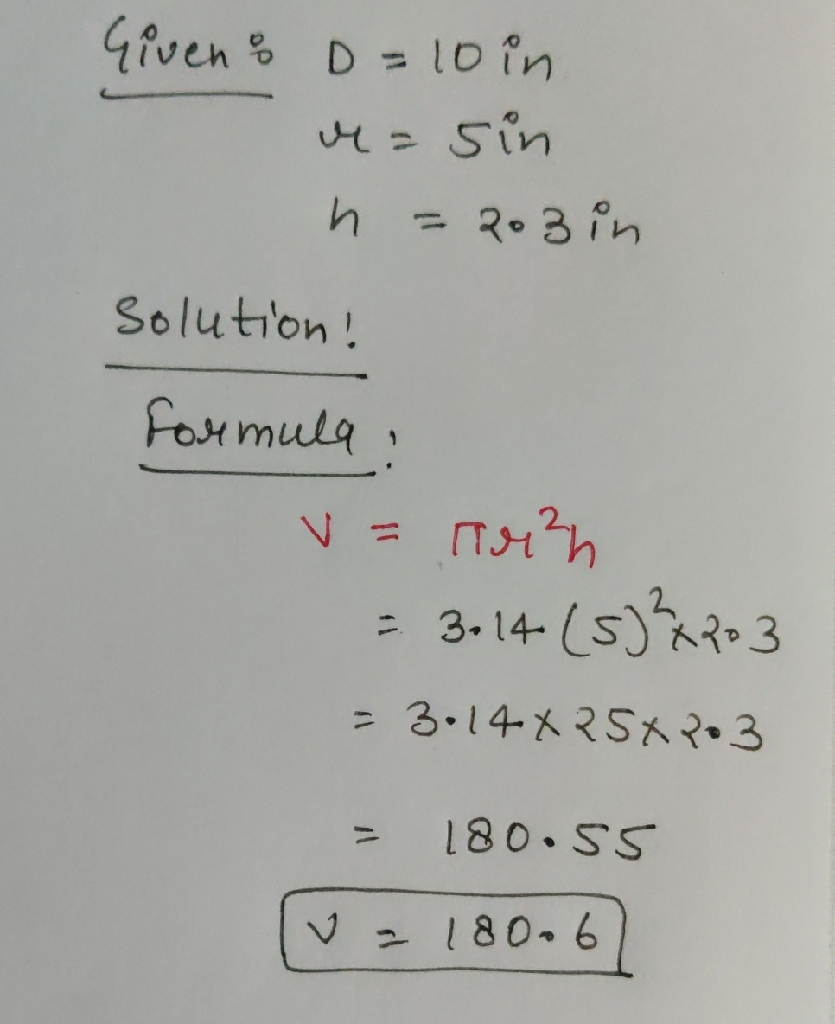 Given : D = 10 in
r = 5 in
h = 2.3 in
Solution :
Formula :
V = πr²h
= 3.14 (5)² × 2.3
= 3.14 × 25 × 2.3
= 180.55
V = 180.6